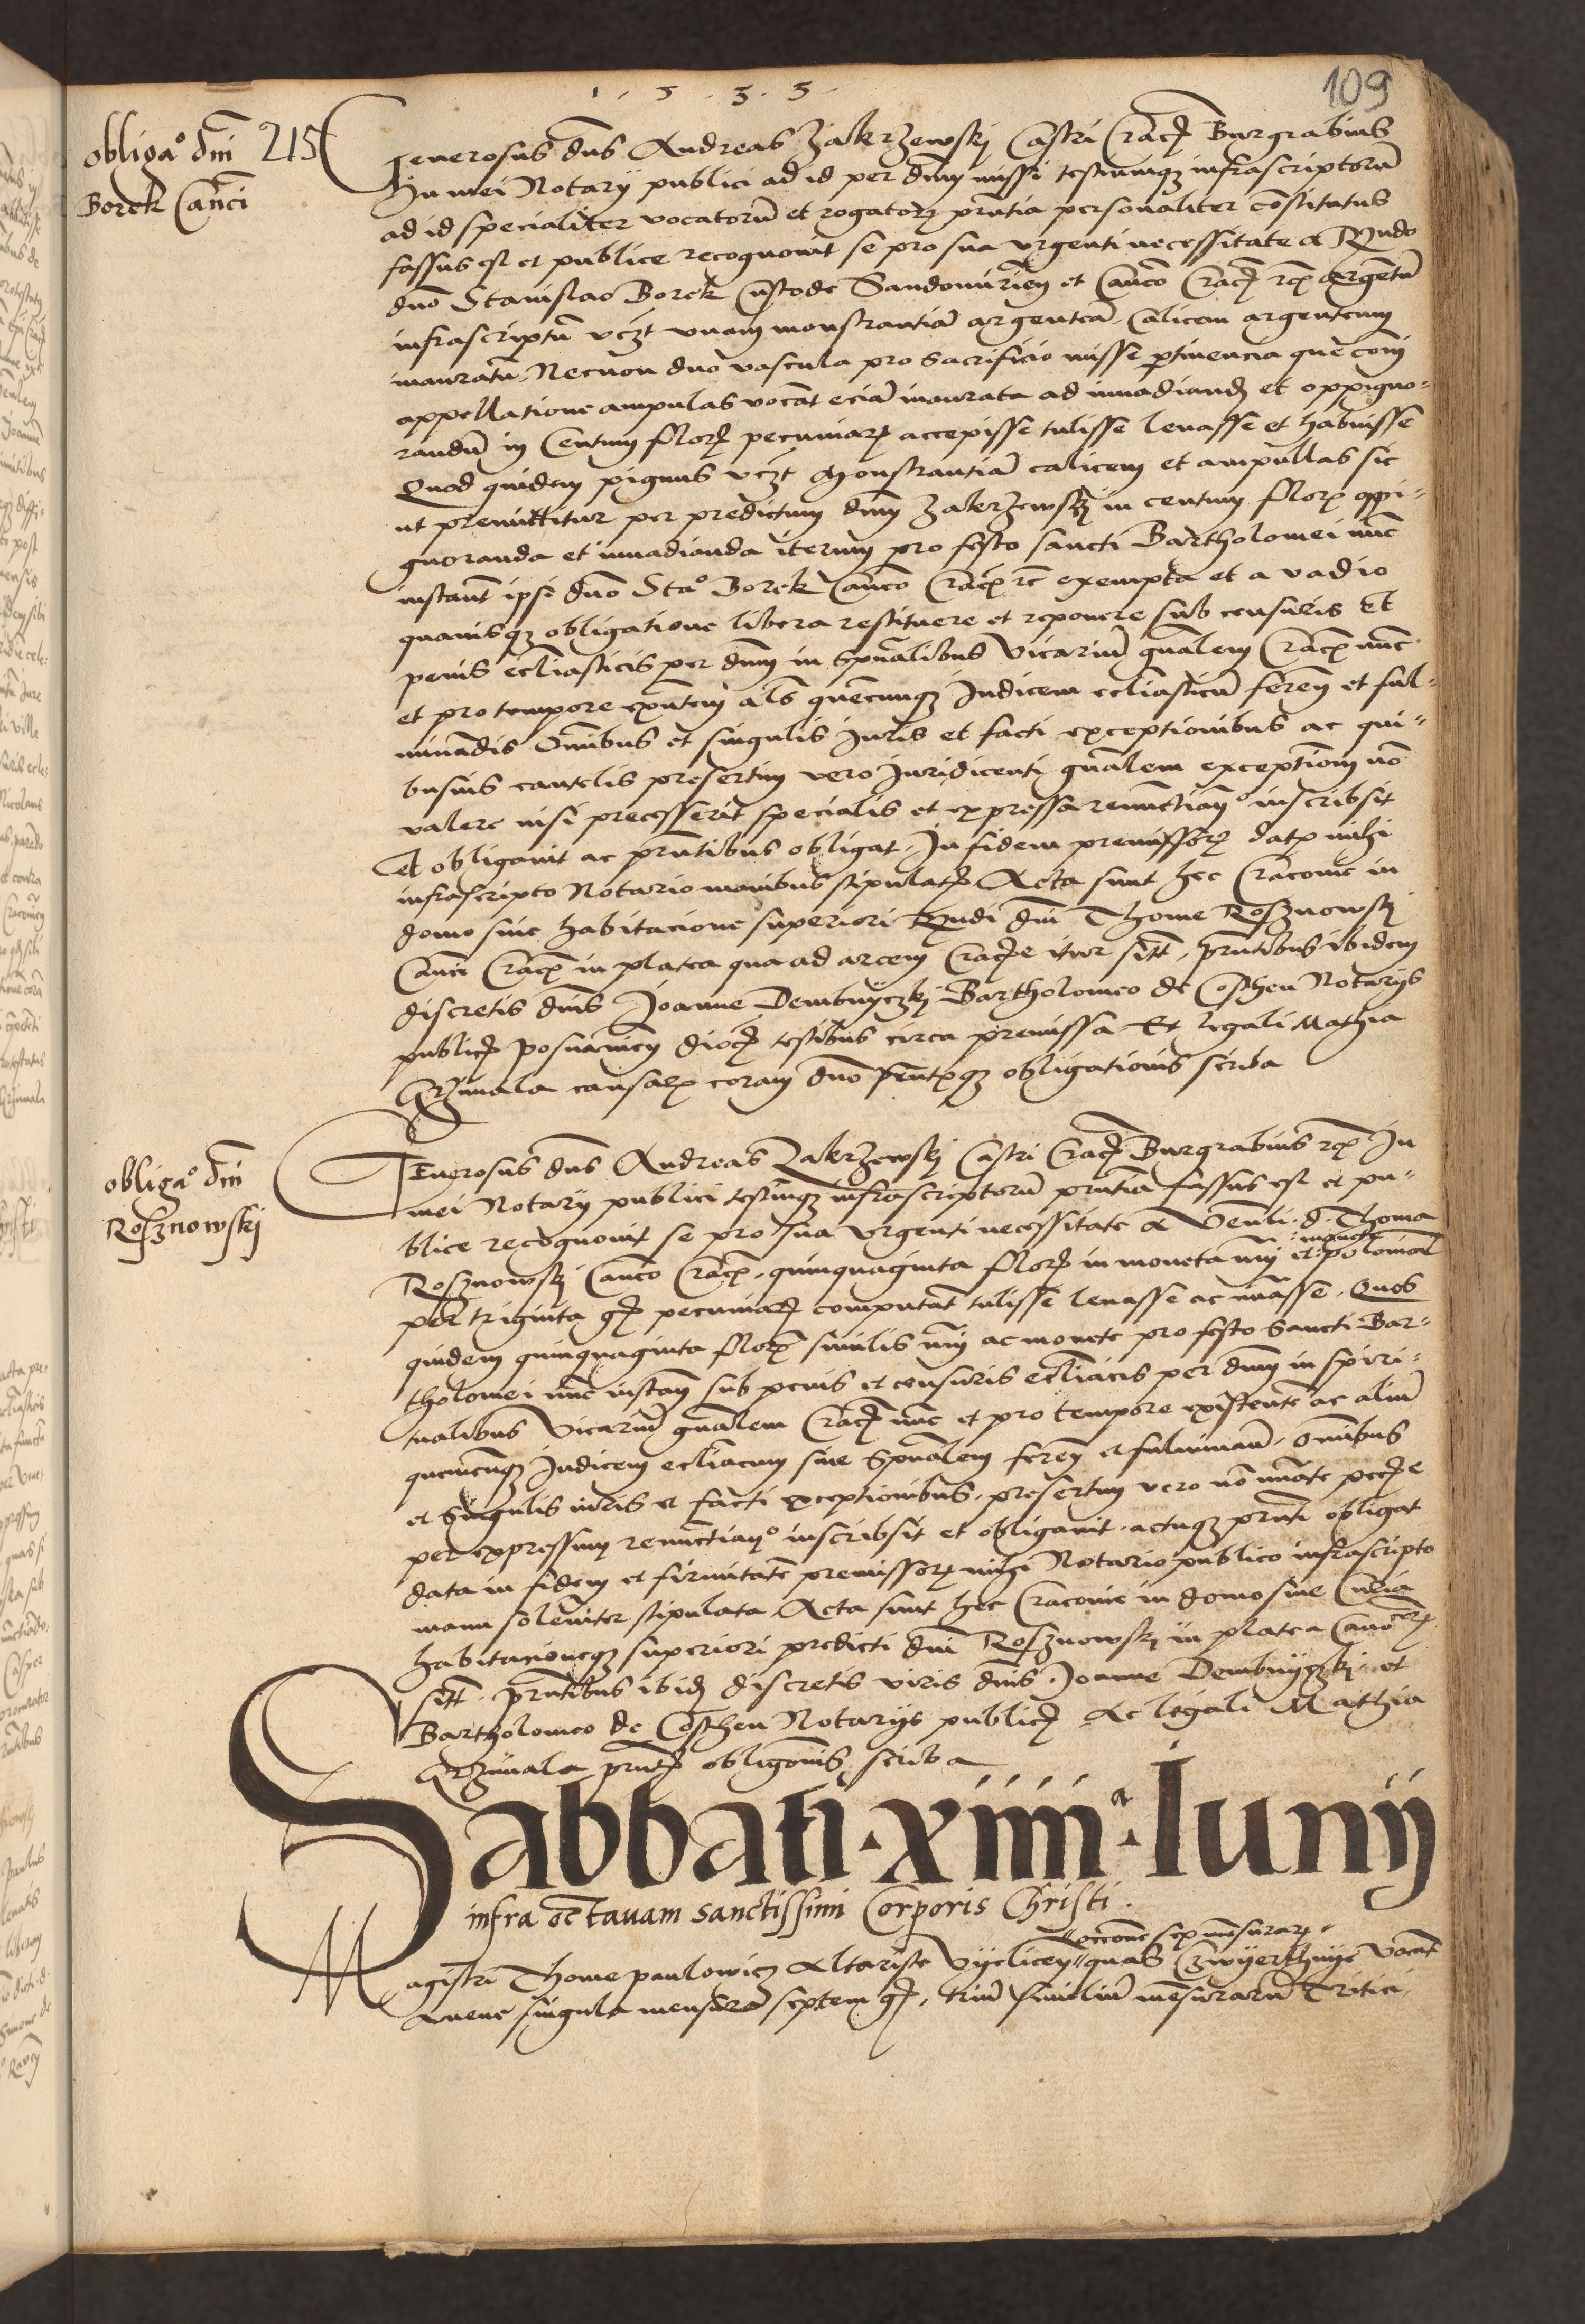 1 . 5 . 3 . 5 .
109
obliga° dni 215
Borek Canci
Generosus dns Andreas Zakrzewskj Castri Cracȷ Burgrabius
In mei Notarÿ publici ad id per dnm missi testiumqȝ infrascriptorū
ad id specialiter vocatorū et rogatorꝝ pñtia personaliter cōstitutus
fassus est et publice recognouit se pro sua vrgenti necessitate a Rndo
dno Stanislao Borek Custode Sandomirien et Canco Cracȷ rcȷ argentū
infrascriptū vczt vnam monstrantiā argenteā. Calicem argenteum
inauratū. Necnon duo vascula pro Sacrificio misse ꝑtinencia que comi
appellatione ampulas vocāt eciā inaurata ad inuadiandȝ et oppigno-
randū in Centum florȝ pecuniarȝ accepisse tulisse leuasse et habuisse
Quod quidem pignus vczt Monstrantiā calicem et ampullas sic
ut premittitur per predictum dnm Zakrzewskj in centum florꝝ oppi-
gnoranda et inuadianda iterum pro festo sancti Bartholomei nūc
instant ipsi dno Sta° Borek Canco Cracȷ rc exempta et a vadio
quauisqȝ obligatione libera restituere et reponere sub censuris Et
penis eccliasticis per dnm in Spūalibus Vicariū gnalem Cracȷ nūc
et pro tempore exntem als quēcunqȝ Iudicem eccliasticū feren et ful-
minādis Omibus et singulis Iuris et facti exceptionibus ac qui-
busuis cautelis presertim vero Iuridicenti gnalem exceptionem nō
valere nisi precesserit specialis et expressa renūctiaṇ° inscribsit
Et obligauit ac pñtibus obligat. In fidem premissorꝝ datȝ mihi
infrascripto Notario manibus stipulatȝ Acta sunt hec Cracouie in
domo siue habitacione superiori Rndi dni Thome Rosznowskj
Canci Cracȷ in platea qua ad arcem Cracȷe itur sitt. pñtibus ibidem
discretis dnis Joanne Dembnyczkj Bartholomeo de Coschen Notarÿs
publicȷ Posnanien diocȷ testibus circa premissa Et legali Mathia
Grzimala causarȝ coram dno pñtȝqȝ obligationis scriba
obliga° dni
Rosznowskj
Generosus dns Andreas Zakrzewskj Castri Cracȷ Burgrabius rcȷ In
mei Notarÿ publici testiumqȝ infrascriptorū pñtia fassus est et pu-
blice recognouit se pro sua vrgenti necessitate a Venli. d. Thoma
Rosznowskj Canco Cracȷ. quinquaginta florȝ in moneta nūi et polonicāl
per triginta gȷ pecuniarȝ computāt tulisse leuasse ac nūasse. Quos
quidem quinquaginta florȝ similis nūi ac monete pro festo Sancti Bar-
tholomei nūc instan sub penis et censuris ecclīacis per dnm in spiri-
tualibus Vicariū gnalem Cracȷ nūc et pro tempore existentē ac aliū
quemcunqȝ Iudicem ecclīacum siue Spūalem feren et fulminan. Omibus
et singulis iuris et facti exceptionibus. presertim vero nō nūate pecȷe
per expressum renūctiaṇ° inscribsit et obligauit. actuqȝ pñti obligat
data in fidem et firmitatē premissorꝝ mihi Notario publico infrascripto
manu solenniter stipulata. Acta sunt hec Cracouie in domo siue Curia
habitacioneqȝ superiori predicti dni Rosznowskj in platea Canocorꝝ
sitt. pñtibus ibidȝ discretis viris dnis. Joanne Dembnyczkj et
Bartholomeo de Coschen Notarÿs publicȷ Ac legali Mathia
Grzimala pñtȷ obligonis scriba
Sabbati . xiiii a . Iunij
infra octauam sanctissimi Corporis Christi .
Magistri Thome paulowicz Altariste Vyelicen quas Czwyerthnye vocāt
Auene singula mensura septem gȷ. triū similiū mēsurarū Tritici.